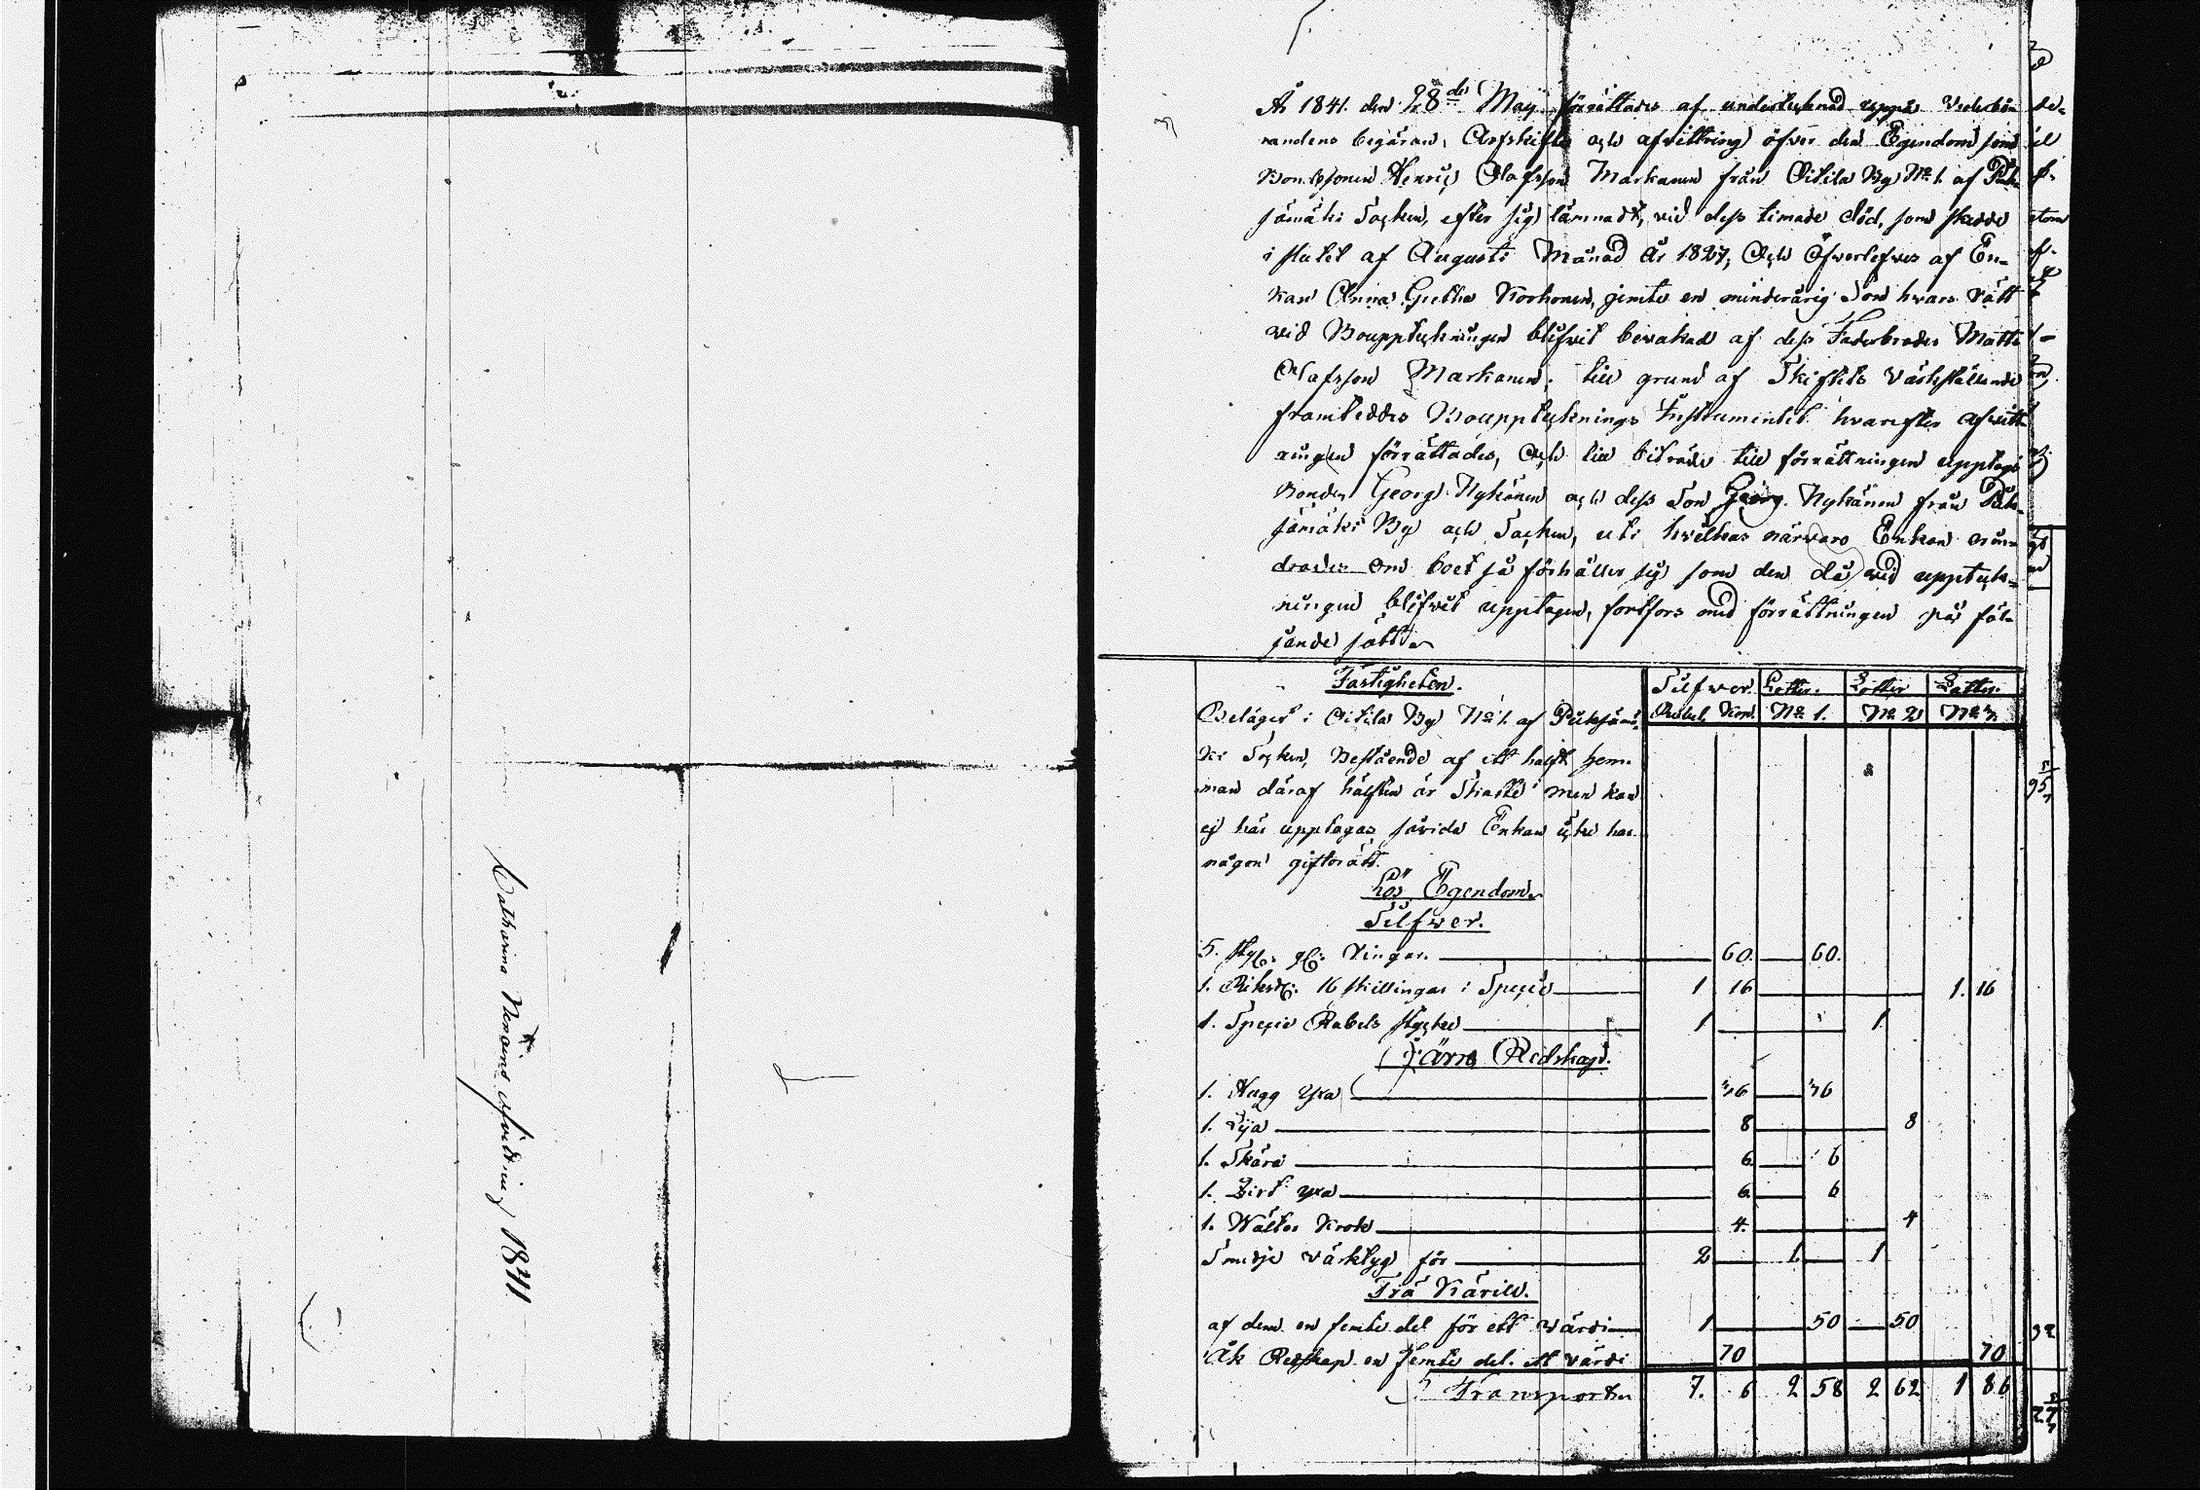 Catharina Nenoins afvittring 1841
År 1841. den 28de May förrättades af undertecknad uppå vederbö-
randens begäran, Arfskifte och afvittring öfver den Egendom som
Bondesonen Henric Olafsson Markanen från Oitila By No 1. af Piek-
sämäki Socken, efter sig lämnadt, vid dess timade död, som skedde
i slutet af Augusti Månad År 1827, Och Öfverlefves af En-
kan Anna Gretha Korhonen, jemte en minderårig Son hvars rätt
vid Boupptekningen blifvit bevakad af dess Faderbroder Matts
Olafsson Markanen; till grund af Skiftets värkställande
framteddes Boupptecknings Instrumentet hvarefter afvitt-
ringen förrättades, Och till biträde till förrättningen upptogs
Bonden Georg Nykänen och dess Son Georg Nykänen från Piek-
sämäki By och Socken, uti hvilkas närvaro Enkan erin-
drades om boet så förhåller sig som den då vid uppteck-
ningen blifvit upptagen, fortfors med förrättningen på föl-
jande sätt
Fastigheten.
Silfver. Lotten. Lotten Lotten.
Rubel. Kop. No 1. No 2 No 3.
Beläget i Oitila By No 1. af Pieksämä-
ki Socken, Bestående af ett halft hem-
man däraf hälften är Skatte men kan
ej här upptagas såvida Enkan icke har
någon giftorätt.
Lös Egendom.
Silfver.
5. st. Ringar. 60. 60.
1. Riksd. 16 skillingar i Specie 1 16 1. 16
1. Specie Rubels stycke 1 1
Järn Redskap.
1. Hugg yxa 36 36
1. Lija 8 8
1. Skära 6 6
1. yxa 6 6
1. Krok 4. 4
Smedje värktyg för 2 1. 1
Trä Käril.
af dem en femte del för ett värdi 1 50 50
Åk Redskap en femte del. ett värdi 70 70
Transporten 7. 6 2 58 2 62 1 86